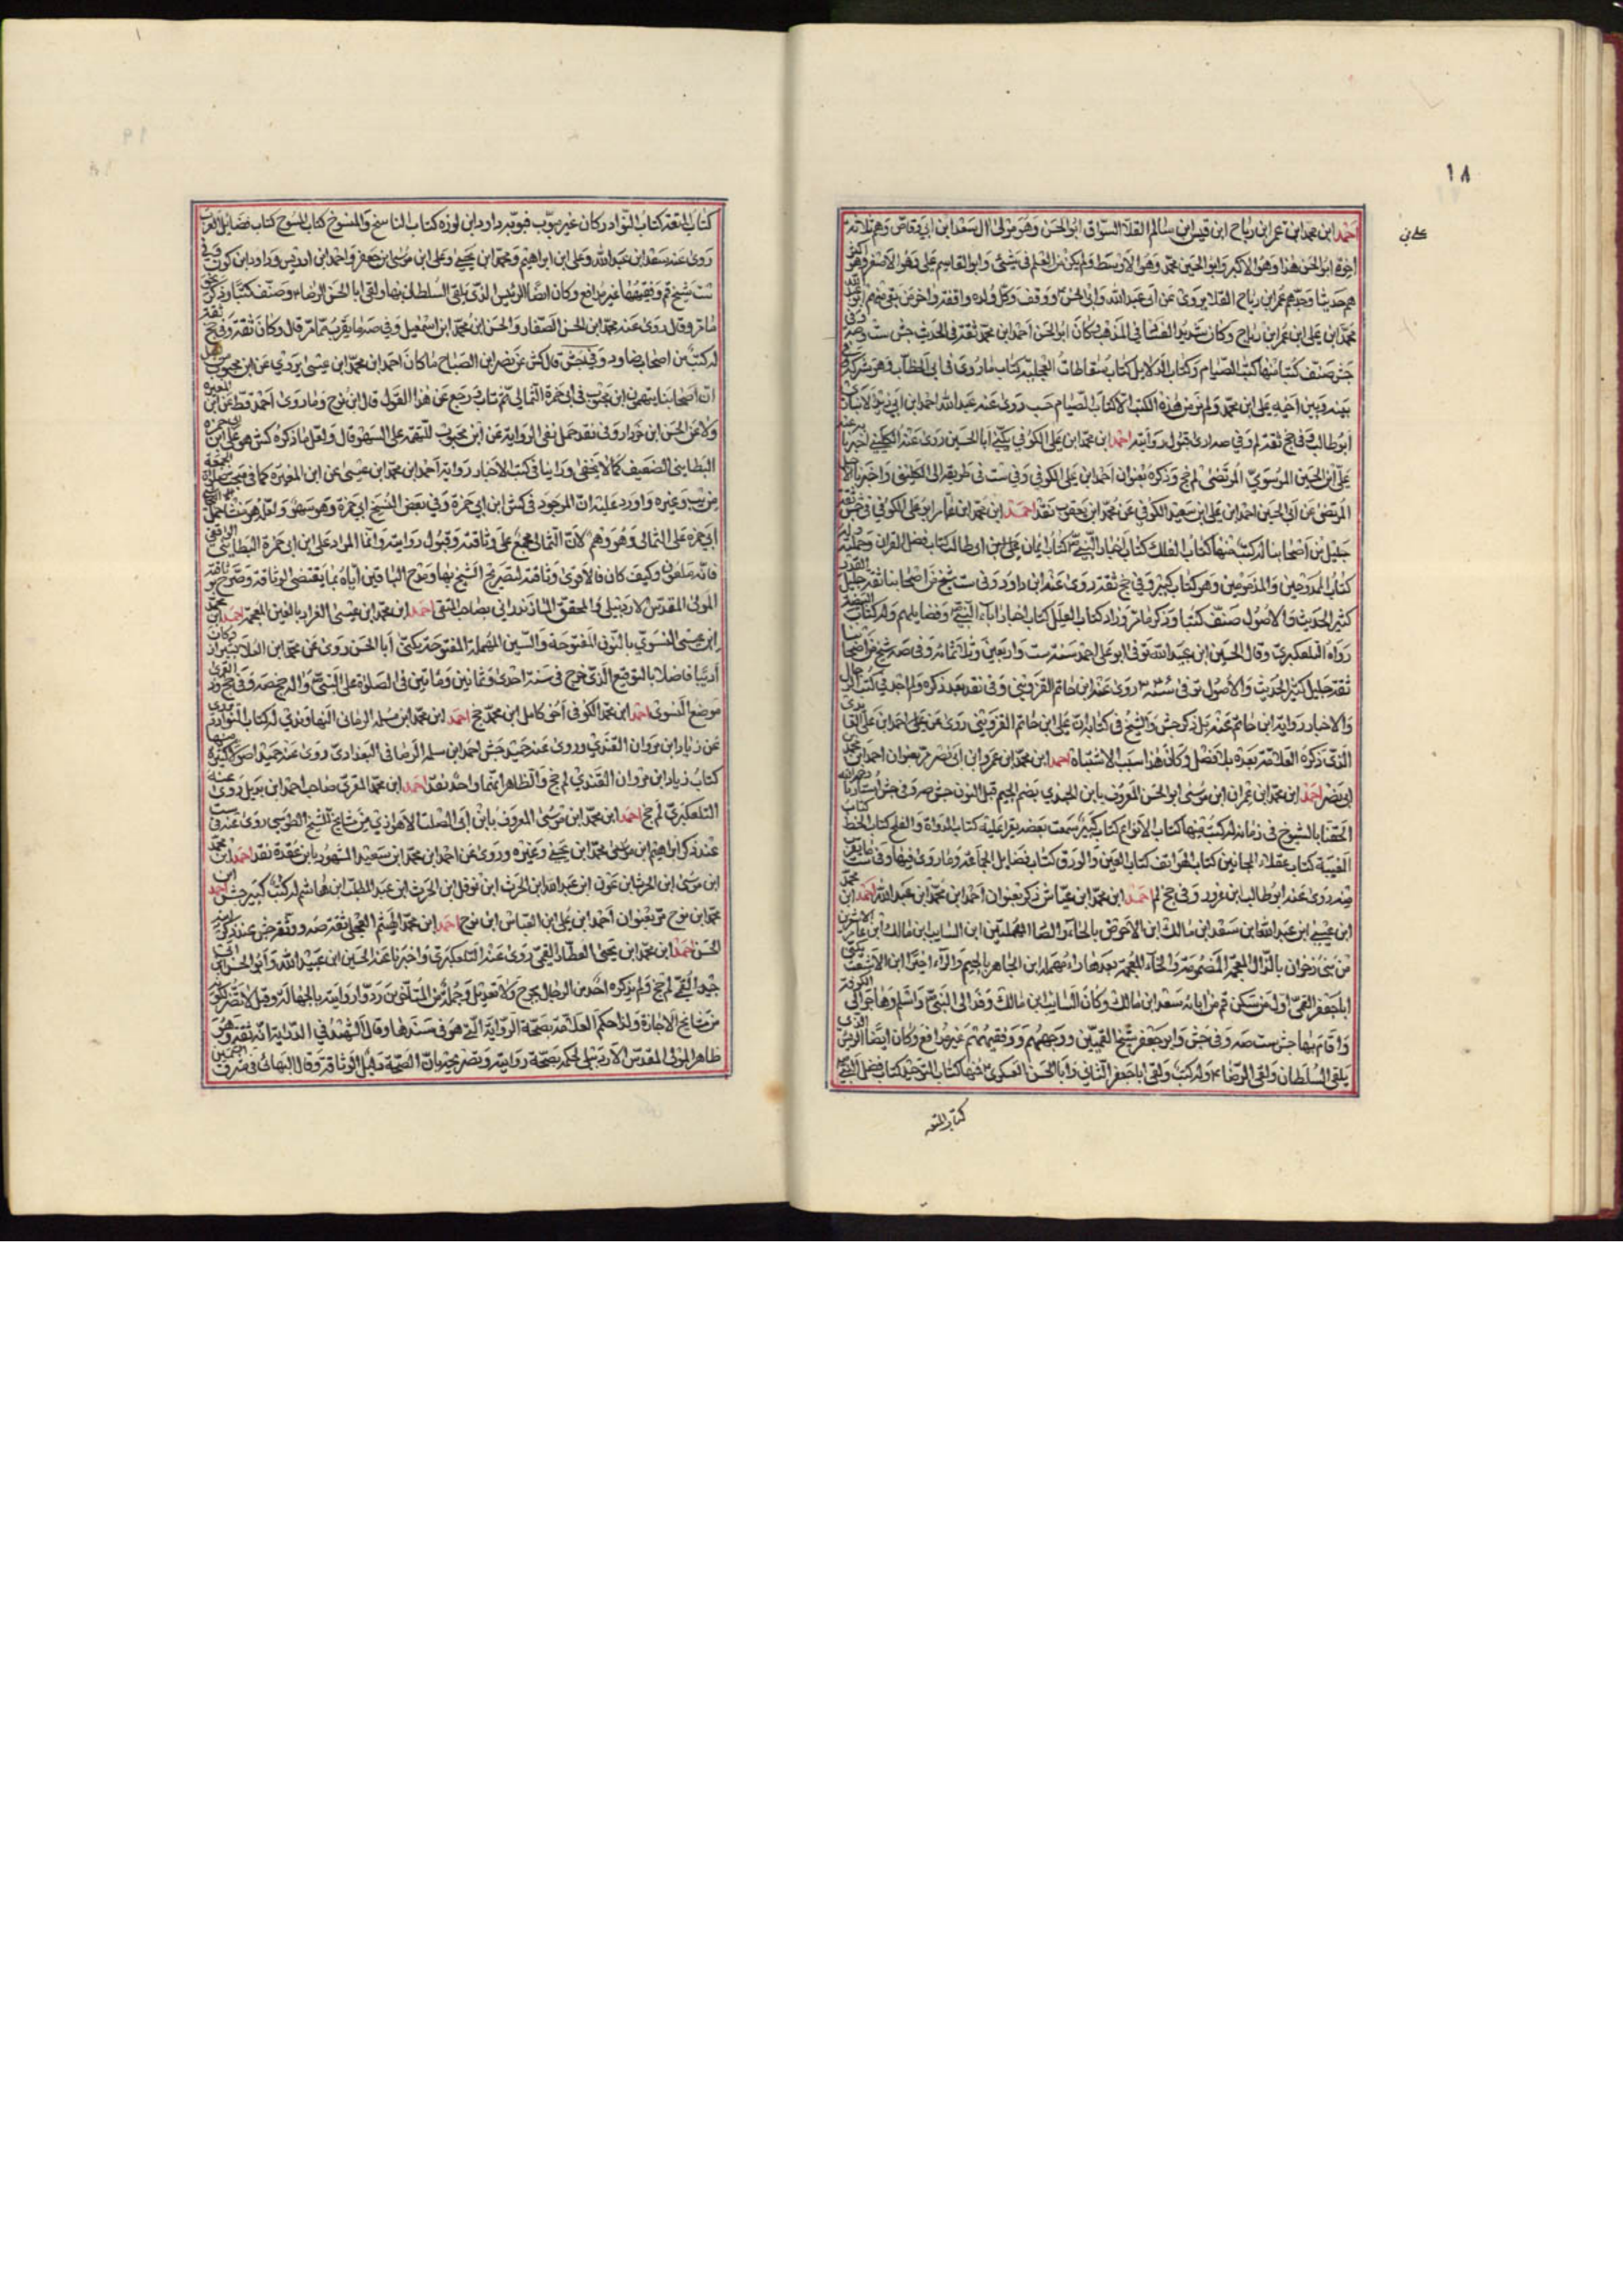 ١٨
احمد ابن محمد ابن عمر ابن رباح ابن قيس ابن سالم القلا السواق ابو الحسن وهو مولى ال سعد ابن ابي وقاص وهم ثلاثة
اخوة ابو الحسن هذا وهو الاكبر وابو الحسين محمد وهو الاوسط ولم يكن من العلم في شئ وابو القاسم علي وهو الاصغر وهو
هم حديثا وجدهم عمر ابن رباح القلا يروى عن ابي عبد الله وابي الحسن ووقف وكل ولده واقفة واخر من بقى منهم
محمد ابن علي ابن عمر ابن رباح وكان شديد في المذهب وكان ابو الحسن احمد ابن محمد ثقة في الحديث جش ست
جش صنف كتبا منها كتب الصيام وكتاب الدلايل كتاب سقاطات العجلية كتاب ما روى في ابي الخطاب وهو شركة
بينه وبين اخيه علي ابن محمد ولم نر من هذه الكتب الا كتاب الصيام حسب روى عنه عبد الله احمد ابن ابي زيد الانباري
ابو طالب وفي جخ ثقة لم وفي صه ارى قبول روايته احمد ابن محمد ابن علي الكوفي يكنى ابا الحسين روى عنه الكليني اخبرنا
علي ابن الحسين الموسوي المرتضى لم جخ وذكره بعنوان احمد ابن علي الكوفي وفي ست في طريقه الى الكليني واخبرنا الاجل
المرتضى عن ابي الحسين احمد ابن علي ابن سعيد الكوفي عن محمد ابن يعقوب نقد احمد ابن محمد ابن عمار ابو علي الكوفي في جش ثقة
جليل من اصحابنا له كتب منها كتاب الفلك كتاب اخبار النبي كتاب ايمان ابي طالب كتاب فضل القران وحملته
كتاب الممدوحين والمذمومين وهو كتاب كبير وفي جخ ثقة روى عنه ابن داود وفي ست شيخ من اصحابنا ثقة جليل
كثير الحديث والاصول صنف كتبا وذكر ما مر وزاد كتاب العلل كتاب اخبار اباء النبي وفضايلهم وله كتاب
رواه التلعكبري وقال الحسين ابن عبيد الله توفى ابو علي احمد سنة ست واربعين وثلاثمائة وفي صه شيخ من اصحابنا
ثقة جليل كثير الحديث والاصول توفى روى عنه ابن حاتم القزويني وفي نقد بعد ذكره ولم اجد في كتب الرجال
والاخبار رواية ابن حاتم عنه بل ذكر جش والشيخ في كتابه ان علي ابن حاتم القزويني روى عن علي احمد ابن علي
الذي ذكره العلامة بعده بلا فصل وكان هذا سبب الاشتباه احمد ابن محمد ابن عمرو ابن ابي نصر مر بعنوان احمد ابن محمد
ابي نصر احمد ابن محمد ابن عمران ابن موسى ابو الحسن المعروف بابن الجندي بضم الجيم قبل النون جش صه وفي جش استادنا
الحقنا بالشيوخ في زمانه له كتب منها كتاب الانواع كتاب كبير سمعت بعضه يقرا عليه كتاب الرواة والفلج كتاب الخط
الغيبة كتاب عقلاء المجانين كتاب الهواتف كتاب العين والورق كتاب فضايل الجماعة وما روى فيها وفي ست
روى عنه ابو طالب ابن غرور وفي جخ لم احمد ابن محمد ابن عياش ذكر بعنوان احمد ابن محمد ابن عبد الله احمد ابن محمد
ابن عيسى ابن عبد الله ابن سعد ابن مالك ابن الاحوص بالحاء والصاد المهملتين ابن السايب ابن مالك ابن عامر الاشعري
من بنى ذخران بالذال المعجمة المضمومة والخاء المعجمة بعدها راء مهملة ابن الجماهر بالجيم والراء اخيرا ابن الاشعث
ابا جعفر القمي اول من سكن قم من ابائه سعد ابن مالك وكان السايب ابن مالك وفد الى النبي واسلم وهاجر الى الكوفة
واقام بها جش ست صه وفي جش وابو جعفر شيخ القميين ووجههم وفقيههم غير مدافع وكان ايضا الرئيس الذي
يلقى السلطان ولقى الرضا وله كتب ولقى ابا جعفر الثاني وابا الحسن العسكري منها كتاب التوحيد كتاب فضل النبي
كتاب المتعة
كتاب المتعة كتاب النوادر وكان غير مبوب فبوبه داود ابن كوره كتاب الناسخ والمنسوخ كتاب المسوخ كتاب فضايل العرب
روى عنه سعد ابن عبد الله وعلي ابن ابراهيم ومحمد ابن يحيى وعلي ابن موسى ابن جعفر واحمد ابن ادريس وداود ابن كورة
ست شيخ قم وفقيهها غير مدافع وكان ايضا الرئيس الذي يلقى السلطان بها ولقى ابا الحسن الرضا وصنف كتبا وذكر
ما مر وقال روى عنه محمد ابن الحسن الصفار والحسن ابن محمد ابن اسمعيل وفي صه ما يقرب مما مر قال وكان ثقة وفي جخ ثقة
له كتب من اصحاب ضا ود وفي جش قال كش عن نصر ابن الصباح ما كان احمد ابن محمد ابن عيسى يروي عن ابن محبوب
ان اصحابنا يتهمون ابن محبوب في ابي حمزة الثمالي ثم تاب ورجع عن هذا القول قال ابن نوح وما روى احمد قط عن ابن المغيرة
ولا عن الحسن ابن خرزاد وفي نقد حمل نفى الرواية عن ابن محبوب للتيقه على السهو قال ولعل ما ذكره كش هو علي ابن
البطايني الضعيف كما لا يخفى ورأينا في كتب الاخبار رواية احمد ابن محمد ابن عيسى عن ابن المغيرة كما في
وغيره واورد عليه ان الموجود في كش ابن ابي حمزة وفي بعض النسخ ابي حمزة وهو سهو ولعل هو منشا حمل
ابي حمزة على الثمالي وهو وهم لان الثمالي مجمع على وثاقته وقبول روايته وانما المراد علي ابن ابي حمزة البطايني
فانه ملعون وكيف كان فالاقوى وثاقته لتصريح الشيخ بها ومدح الباقين اياه بما يقتضى الوثاقة وصرح بوثاقته
المولى المقدس الاردبيلي والمحقق المازندراني صاحب المنتقى احمد ابن محمد ابن عيسى العراد بالغين المعجمة احمد ابن محمد
ابن عيسى النسوي بالنون المفتوحة والسين المهملة المفتوحة يكنى ابا الحسن روى عن محمد ابن العلا بشيراز وكان
اديبا فاضلا بالتوقيع الذي خرج في سنة احدى وثمانين ومائتين في الصلوة على النبي واله جخ صه
موضع النسوي احمد ابن محمد الكوفي اخو كامل ابن محمد جخ احمد ابن محمد ابن مسلمة الرماني النهاوندي له كتاب النوادر
عن زياد ابن مروان القندي وروى عنه حميد جش احمد ابن سلمة الرصافي البغدادي روى عنه حميد اصولا كثيرة منها
كتاب زياد ابن مروان القندي لم جخ والظاهر انهما واحد نقد احمد ابن محمد المقري صاحب احمد ابن بديل روى عنه
التلعكبري لم جخ احمد ابن محمد ابن موسى المعروف بابن ابي الصلت الاهوازي من مشايخ الشيخ الطوسي روى عنه في ست
عند ذكر ابراهيم ابن محمد ابن يحيى وغيره وروى عن احمد ابن محمد ابن سعيد المشهور بابن عقدة نقد احمد ابن محمد
ابن موسى ابن الحرث ابن عون ابن عبد الله ابن الحرث ابن نوفل ابن الحرث ابن عبد المطلب ابن هاشم له كتب كبير جش احمد ابن
محمد ابن نوح مر بعنوان احمد ابن علي ابن العباس ابن نوح احمد ابن محمد الهيثم العجلي ثقة صه ووثقه جش عند ذكر ابنه
الحسن احمد ابن محمد ابن يحيى العطار القمي روى عنه التلعكبري واخبرنا عنه الحسين ابن عبيد الله وابو الحسين ابن ابي
جيد القمي لم جخ ولم يذكره احد من الرجال بجرح ولا تعديل وجملة من المتأخرين ردوا روايته بالجهالة وقيل لا يضر لكونه
من مشايخ الاجازة ولذا حكم العلامة بصحة الرواية التي هو في سندها وقال الشهيد في الدراية انه ثقة وهو
ظاهر المولى المقدس الاردبيلي لحكمه بصحة روايته وبتصريحه بان الصحة مقابل الوثاقة وقال البهائي في مشرق الشمسين